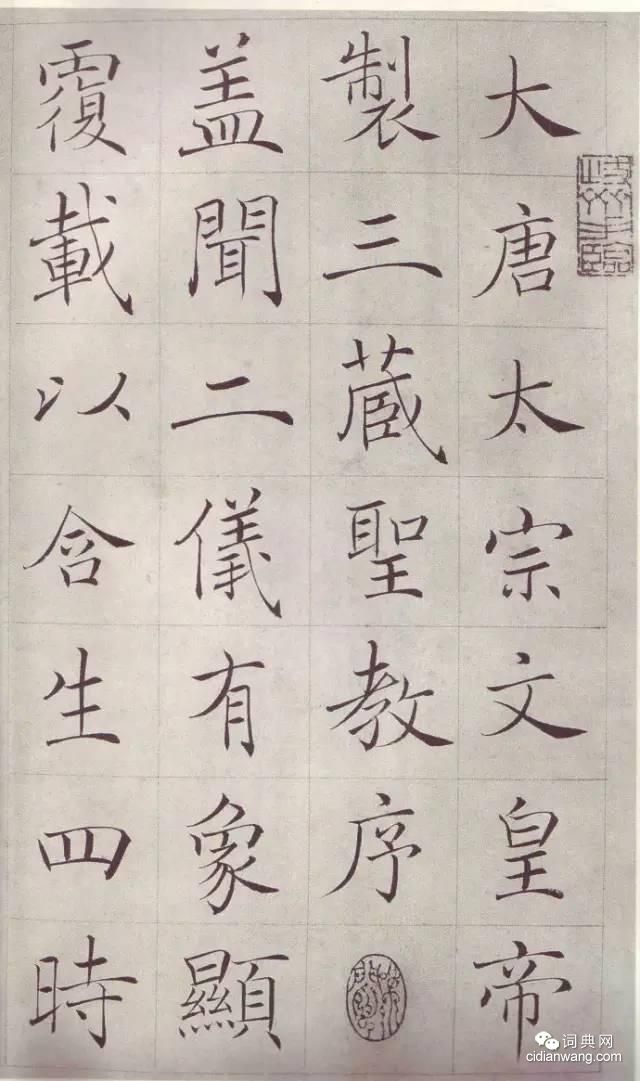 大唐太宗文皇帝
製三蔵聖教序
盖聞二儀有象顯
覆載以含生四時
词典网
cidianwang.com